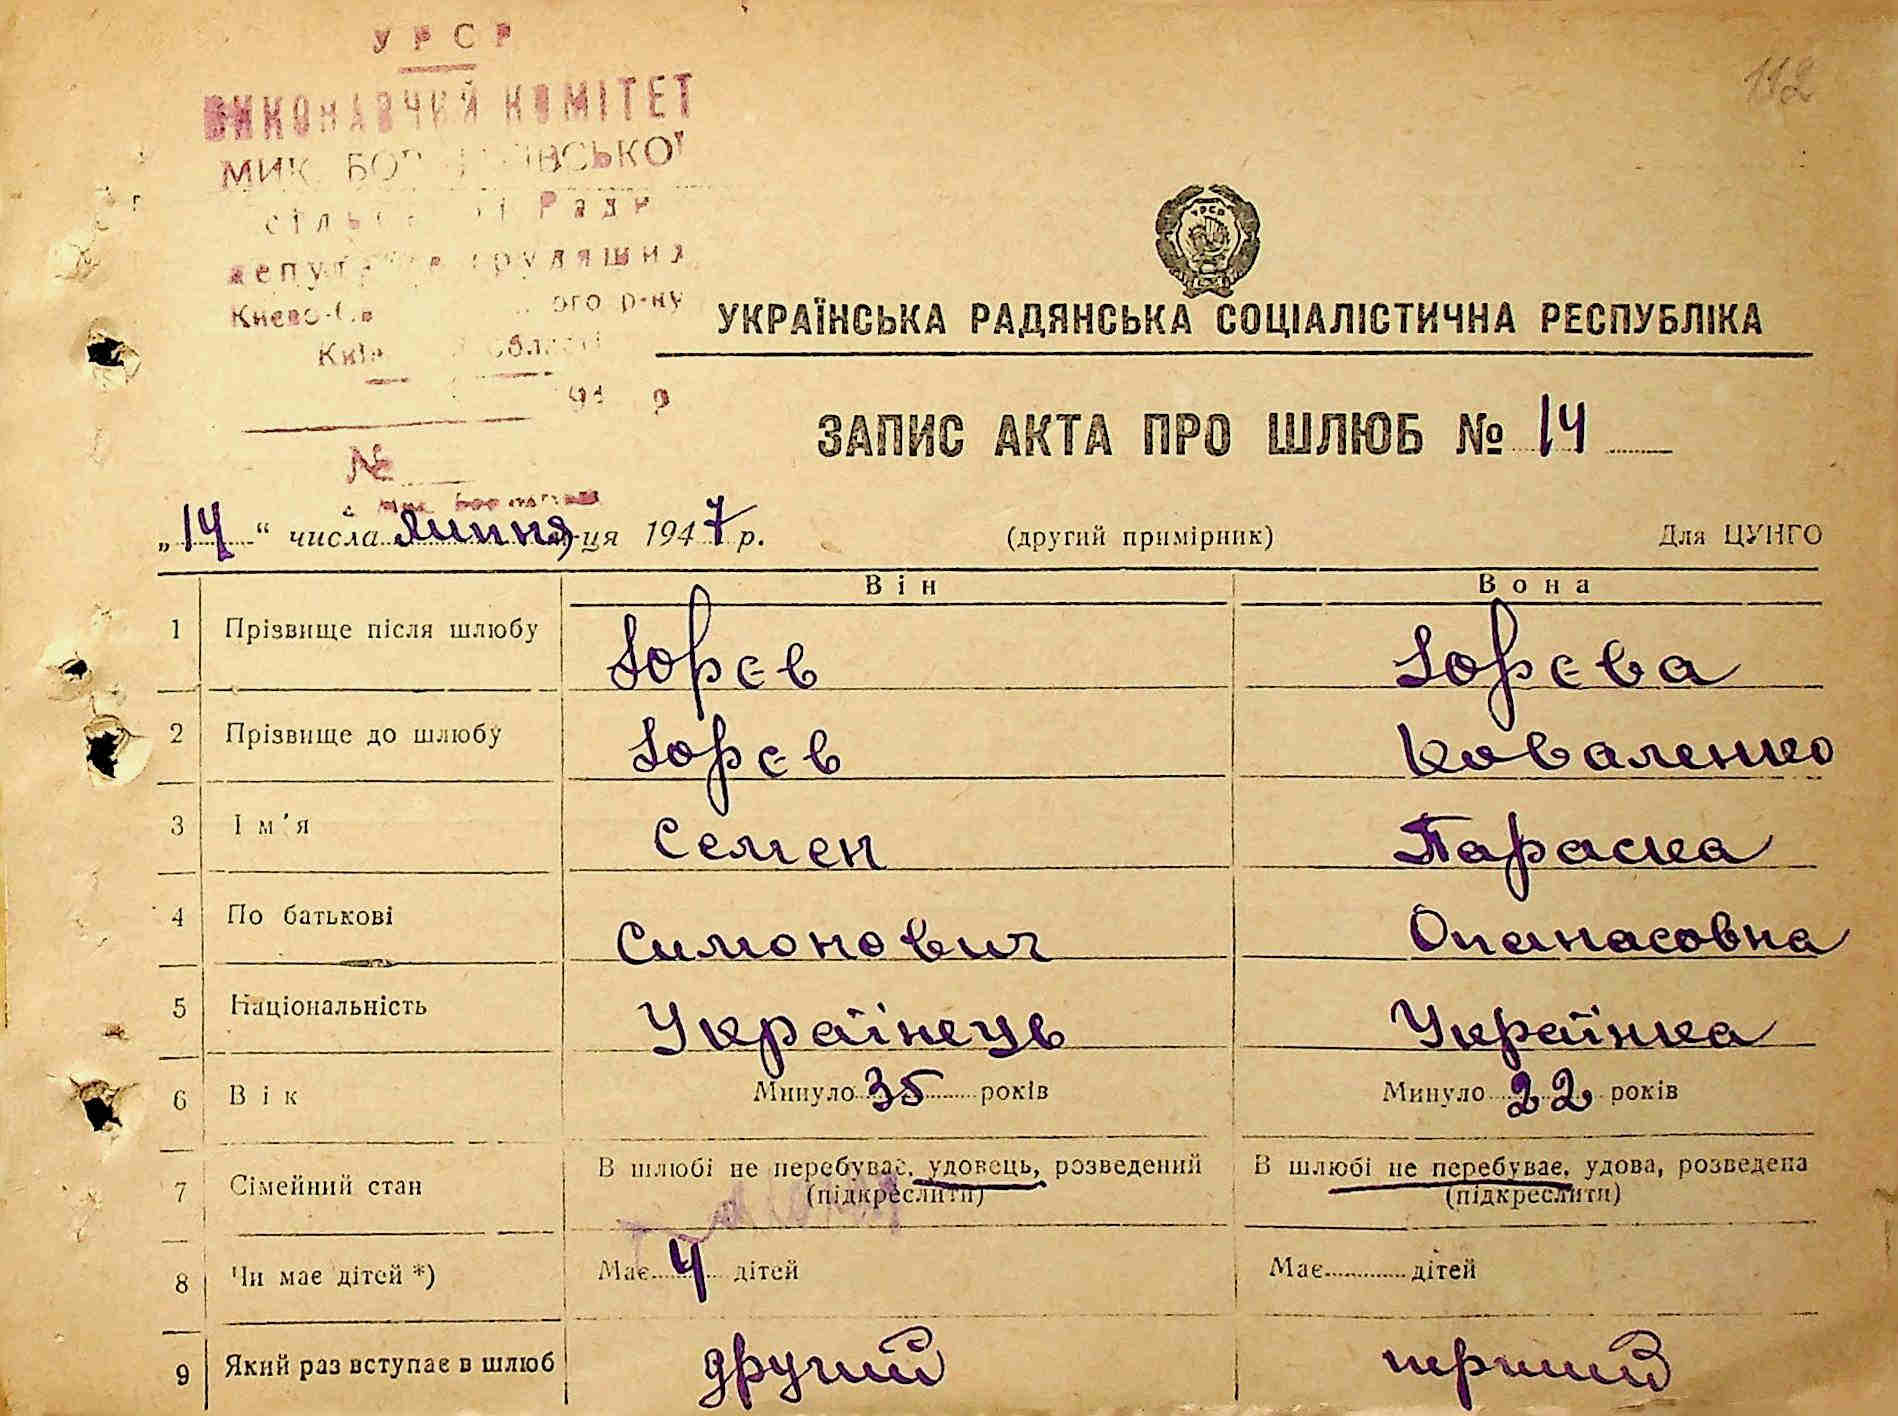 УРСР
112
ВИКОНАВЧИЙ КОМІТЕТ
МИК
Ради
Києво- ого р-ну
УКРАЇНСЬКА РАДЯНСЬКА СОЦІАЛІСТИЧНА РЕСПУБЛІКА
ЗАПИС АКТА ПРО ШЛЮБ № 14
№
„14“ числа липня-ця 1947 р. (другий примірник) Для ЦУНГО
Він Вона
1 Прізвище після шлюбу Юрєв Юрєва
2 Прізвище до шлюбу Юрєв Коваленко
3 Ім'я Семен Параска
4 По батькові Симонович Опанасовна
5 Національність Українець Українка
6 Вік Минуло 35 років Минуло 22 років
7 Сімейний стан В шлюбі не перебуває, удовець, розведений В шлюбі не перебуває, удова, розведена
(підкреслити) (підкреслити)
8 Чи має дітей *) Має 4 дітей Має дітей
9 Який раз вступає в шлюб другий